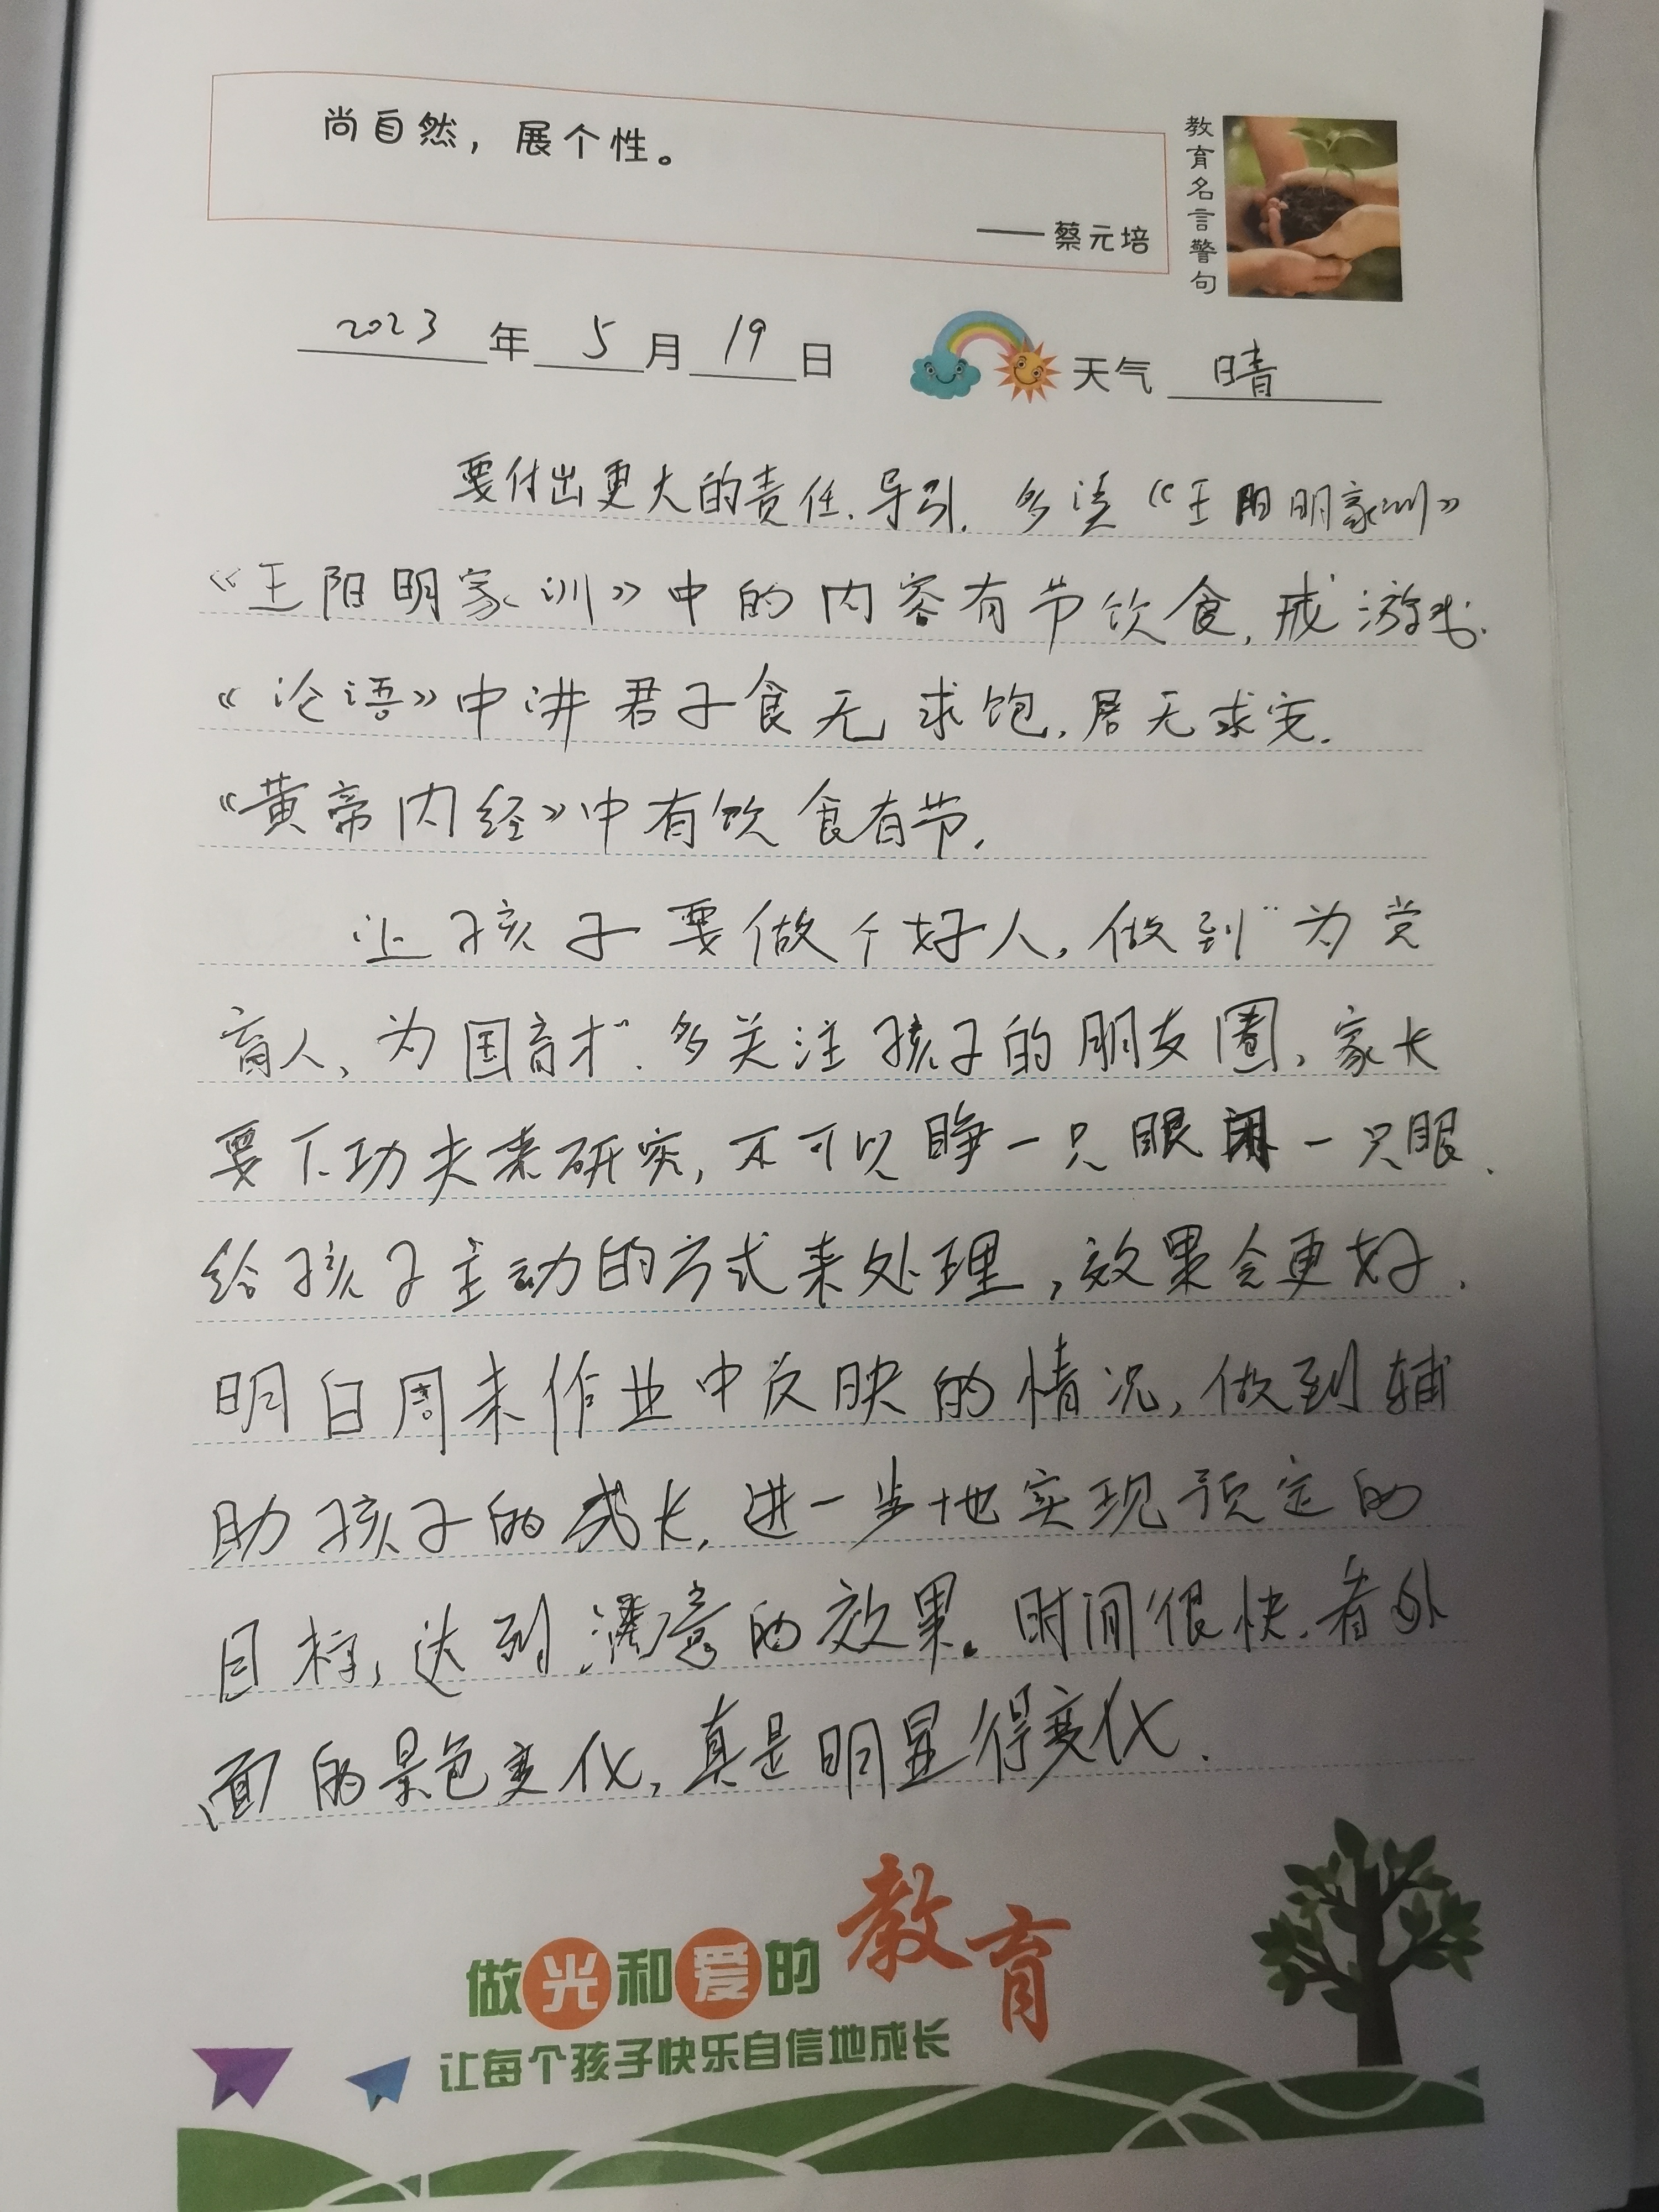 尚自然，展个性。
——蔡元培
教育名言警句
2023年5月19日 天气 晴
要付出更大的责任.导引. 多读《王阳明家训》
《王阳明家训》中的内容有节饮食,戒游戏.
《论语》中讲君子食无求饱.居无求安.
《黄帝内经》中有饮食有节.
让孩子要做个好人,做到“为党
育人、为国育才”.多关注孩子的朋友圈,家长
要下功夫来研究,不可以睁一只眼闭一只眼.
给孩子主动的方式来处理,效果会更好.
明白周末作业中反映的情况,做到辅
助孩子的成长.进一步地实现预定的
目标,达到满意的效果。时间很快.看外
面的景色变化,真是明显得变化.
做光和爱的教育
让每个孩子快乐自信地成长